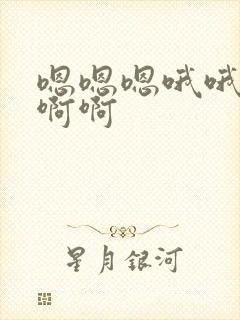 嗯嗯嗯哦哦
啊啊
星月银河